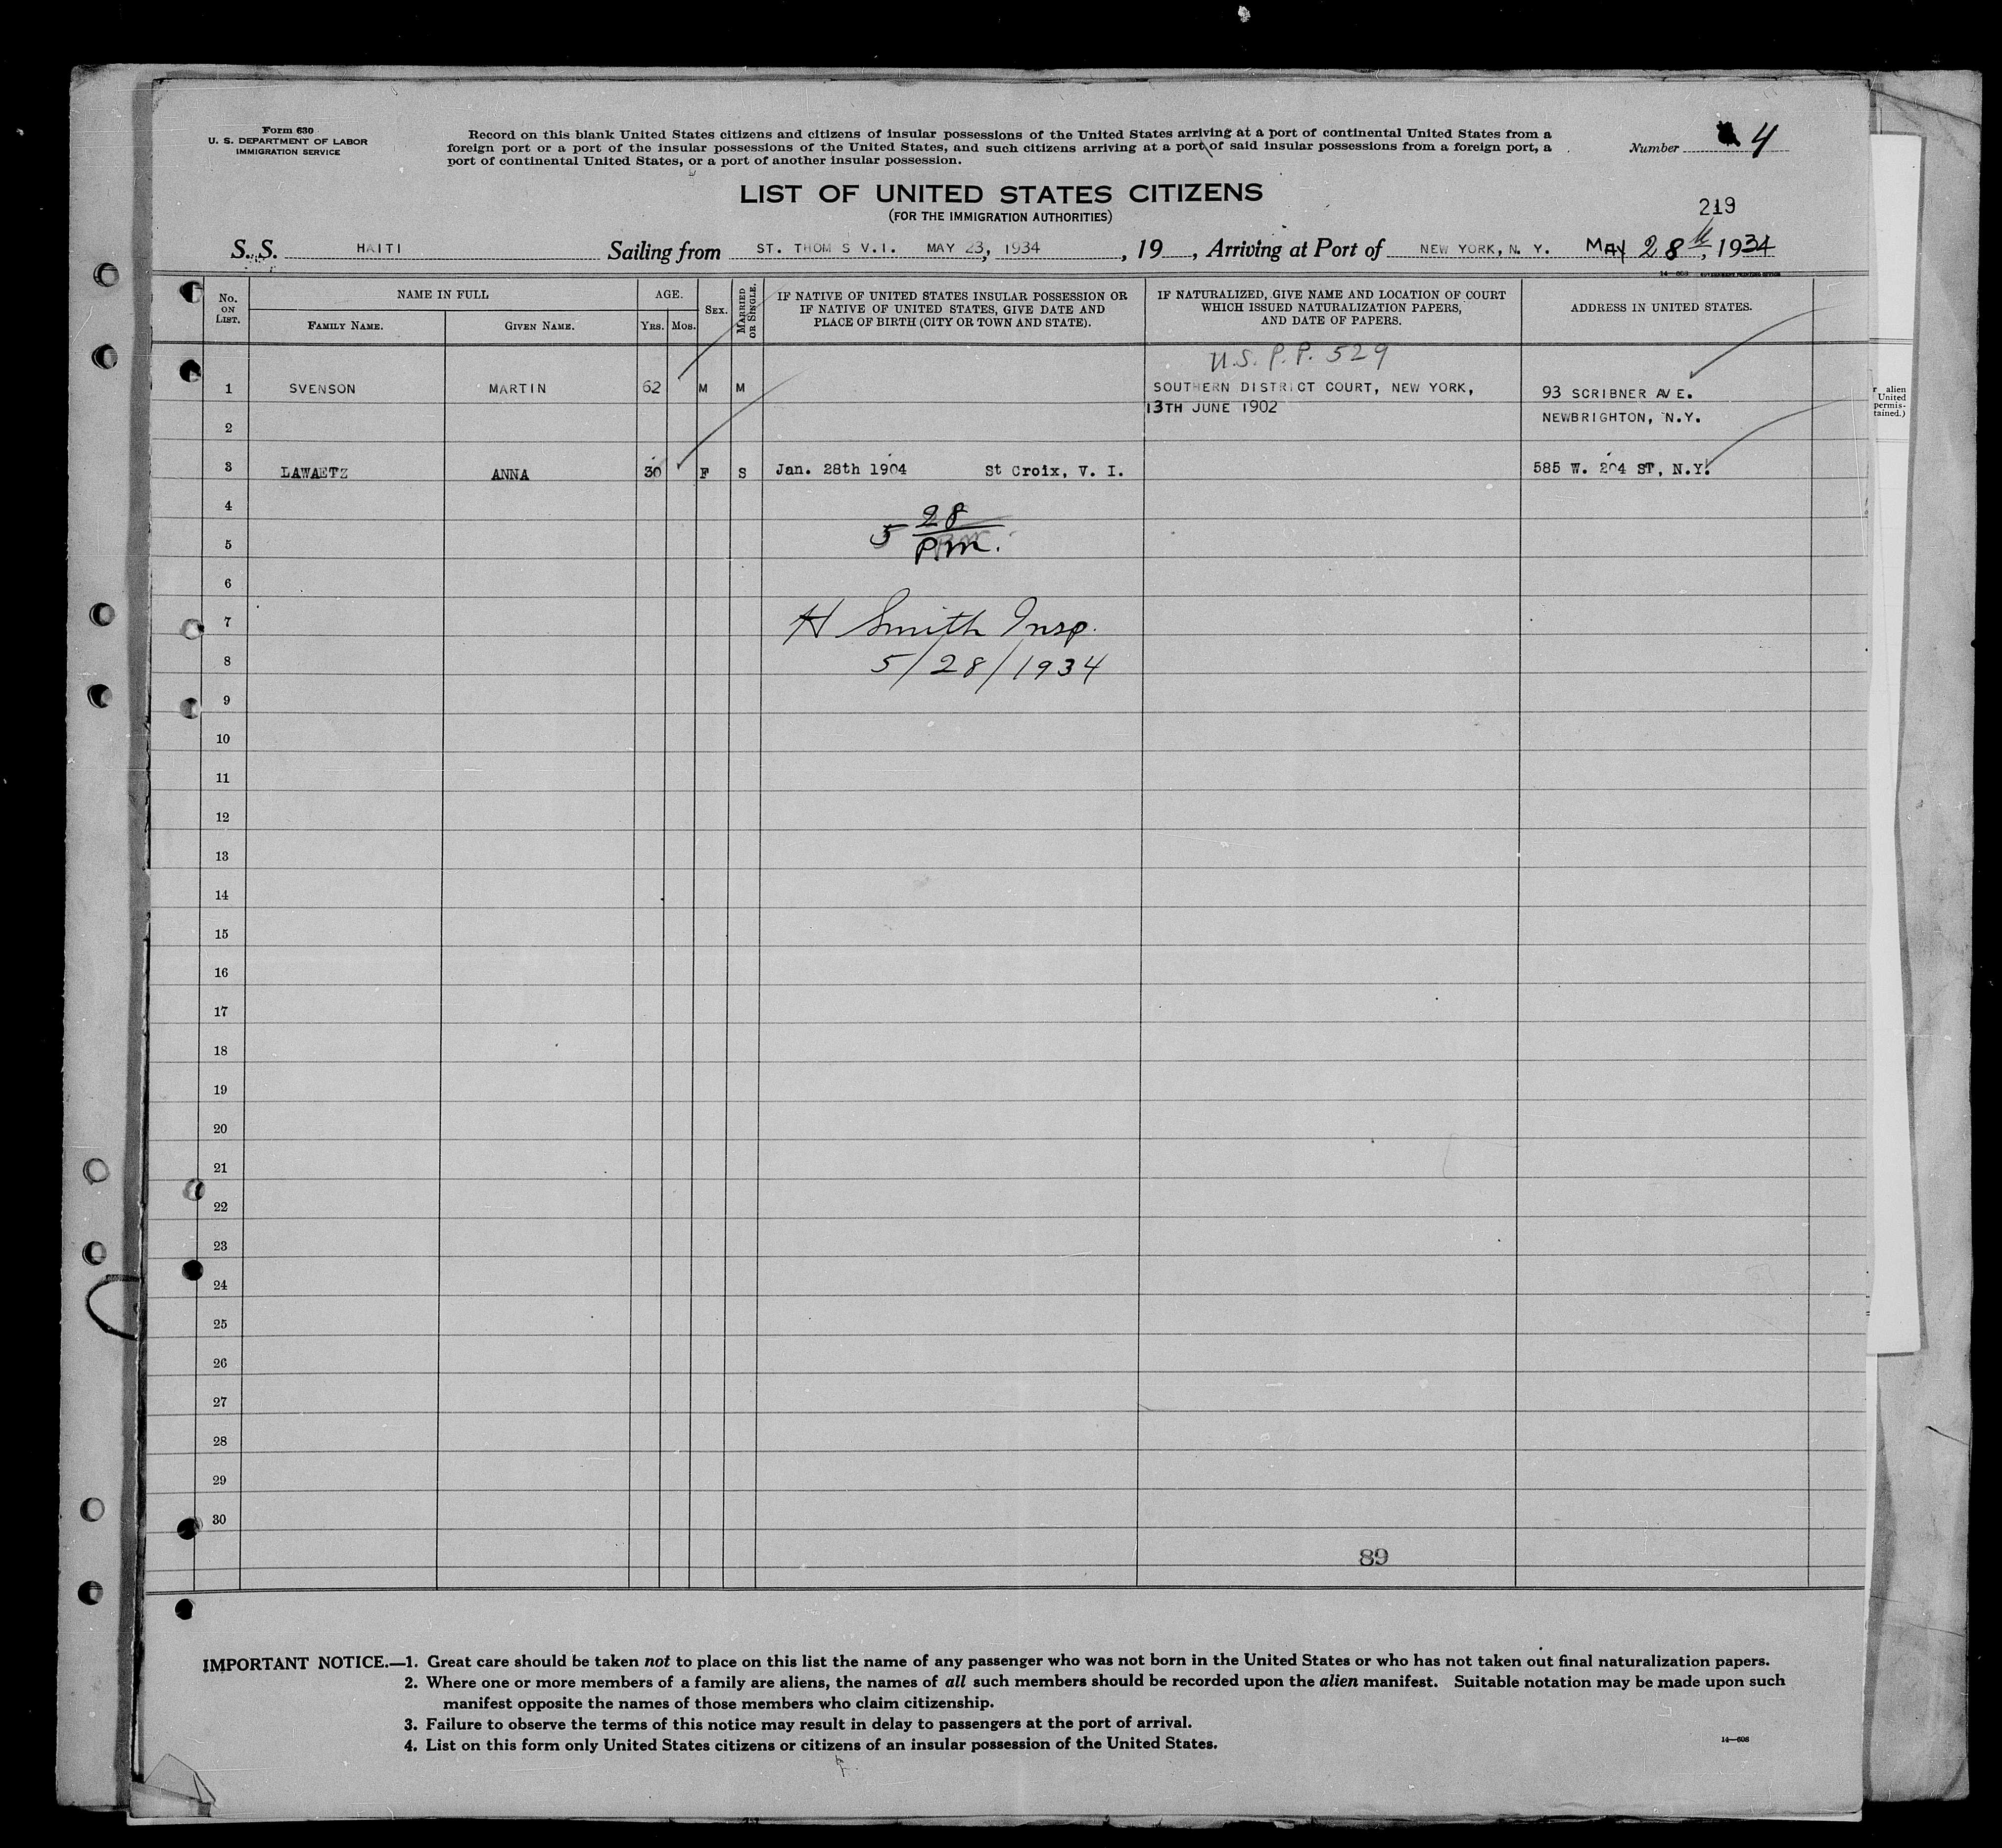 Form 630
U. S. DEPARTMENT OF LABOR
IMMIGRATION SERVICE
Record on this blank United States citizens and citizens of insular possessions of the United States arriving at a port of continental United States from a
foreign port or a port of the insular possessions of the United States, and such citizens arriving at a port of said insular possessions from a foreign port, a
port of continental United States, or a port of another insular possession.
Number 4
LIST OF UNITED STATES CITIZENS
(FOR THE IMMIGRATION AUTHORITIES)
219
S. S. HAITI Sailing from ST. THOM S V.I. MAY 23, 1934, 19 , Arriving at Port of NEW YORK, N. Y. MAY 28th, 1934
No. ON LIST.
NAME IN FULL
FAMILY NAME. GIVEN NAME.
AGE.
YRS. MOS.
SEX.
MARRIED OR SINGLE.
IF NATIVE OF UNITED STATES INSULAR POSSESSION OR
IF NATIVE OF UNITED STATES, GIVE DATE AND
PLACE OF BIRTH (CITY OR TOWN AND STATE).
IF NATURALIZED, GIVE NAME AND LOCATION OF COURT
WHICH ISSUED NATURALIZATION PAPERS,
AND DATE OF PAPERS.
ADDRESS IN UNITED STATES.
U.S. P.P. 529
1 SVENSON MARTIN 62 M M SOUTHERN DISTRICT COURT, NEW YORK, 93 SCRIBNER AVE.
13TH JUNE 1902
2 NEWBRIGHTON, N.Y.
3 LAWAETZ ANNA 30 F S Jan. 28th 1904 St Croix, V. I. 585 W. 204 ST, N.Y.
4
5 28
5 P.M.
6
7 H Smith Insp.
8 5/28/1934
9
10
11
12
13
14
15
16
17
18
19
20
21
22
23
24
25
26
27
28
29
30
89
IMPORTANT NOTICE.—1. Great care should be taken not to place on this list the name of any passenger who was not born in the United States or who has not taken out final naturalization papers.
2. Where one or more members of a family are aliens, the names of all such members should be recorded upon the alien manifest. Suitable notation may be made upon such
manifest opposite the names of those members who claim citizenship.
3. Failure to observe the terms of this notice may result in delay to passengers at the port of arrival.
4. List on this form only United States citizens or citizens of an insular possession of the United States.
14—608
r alien
United
permis-
tained.)